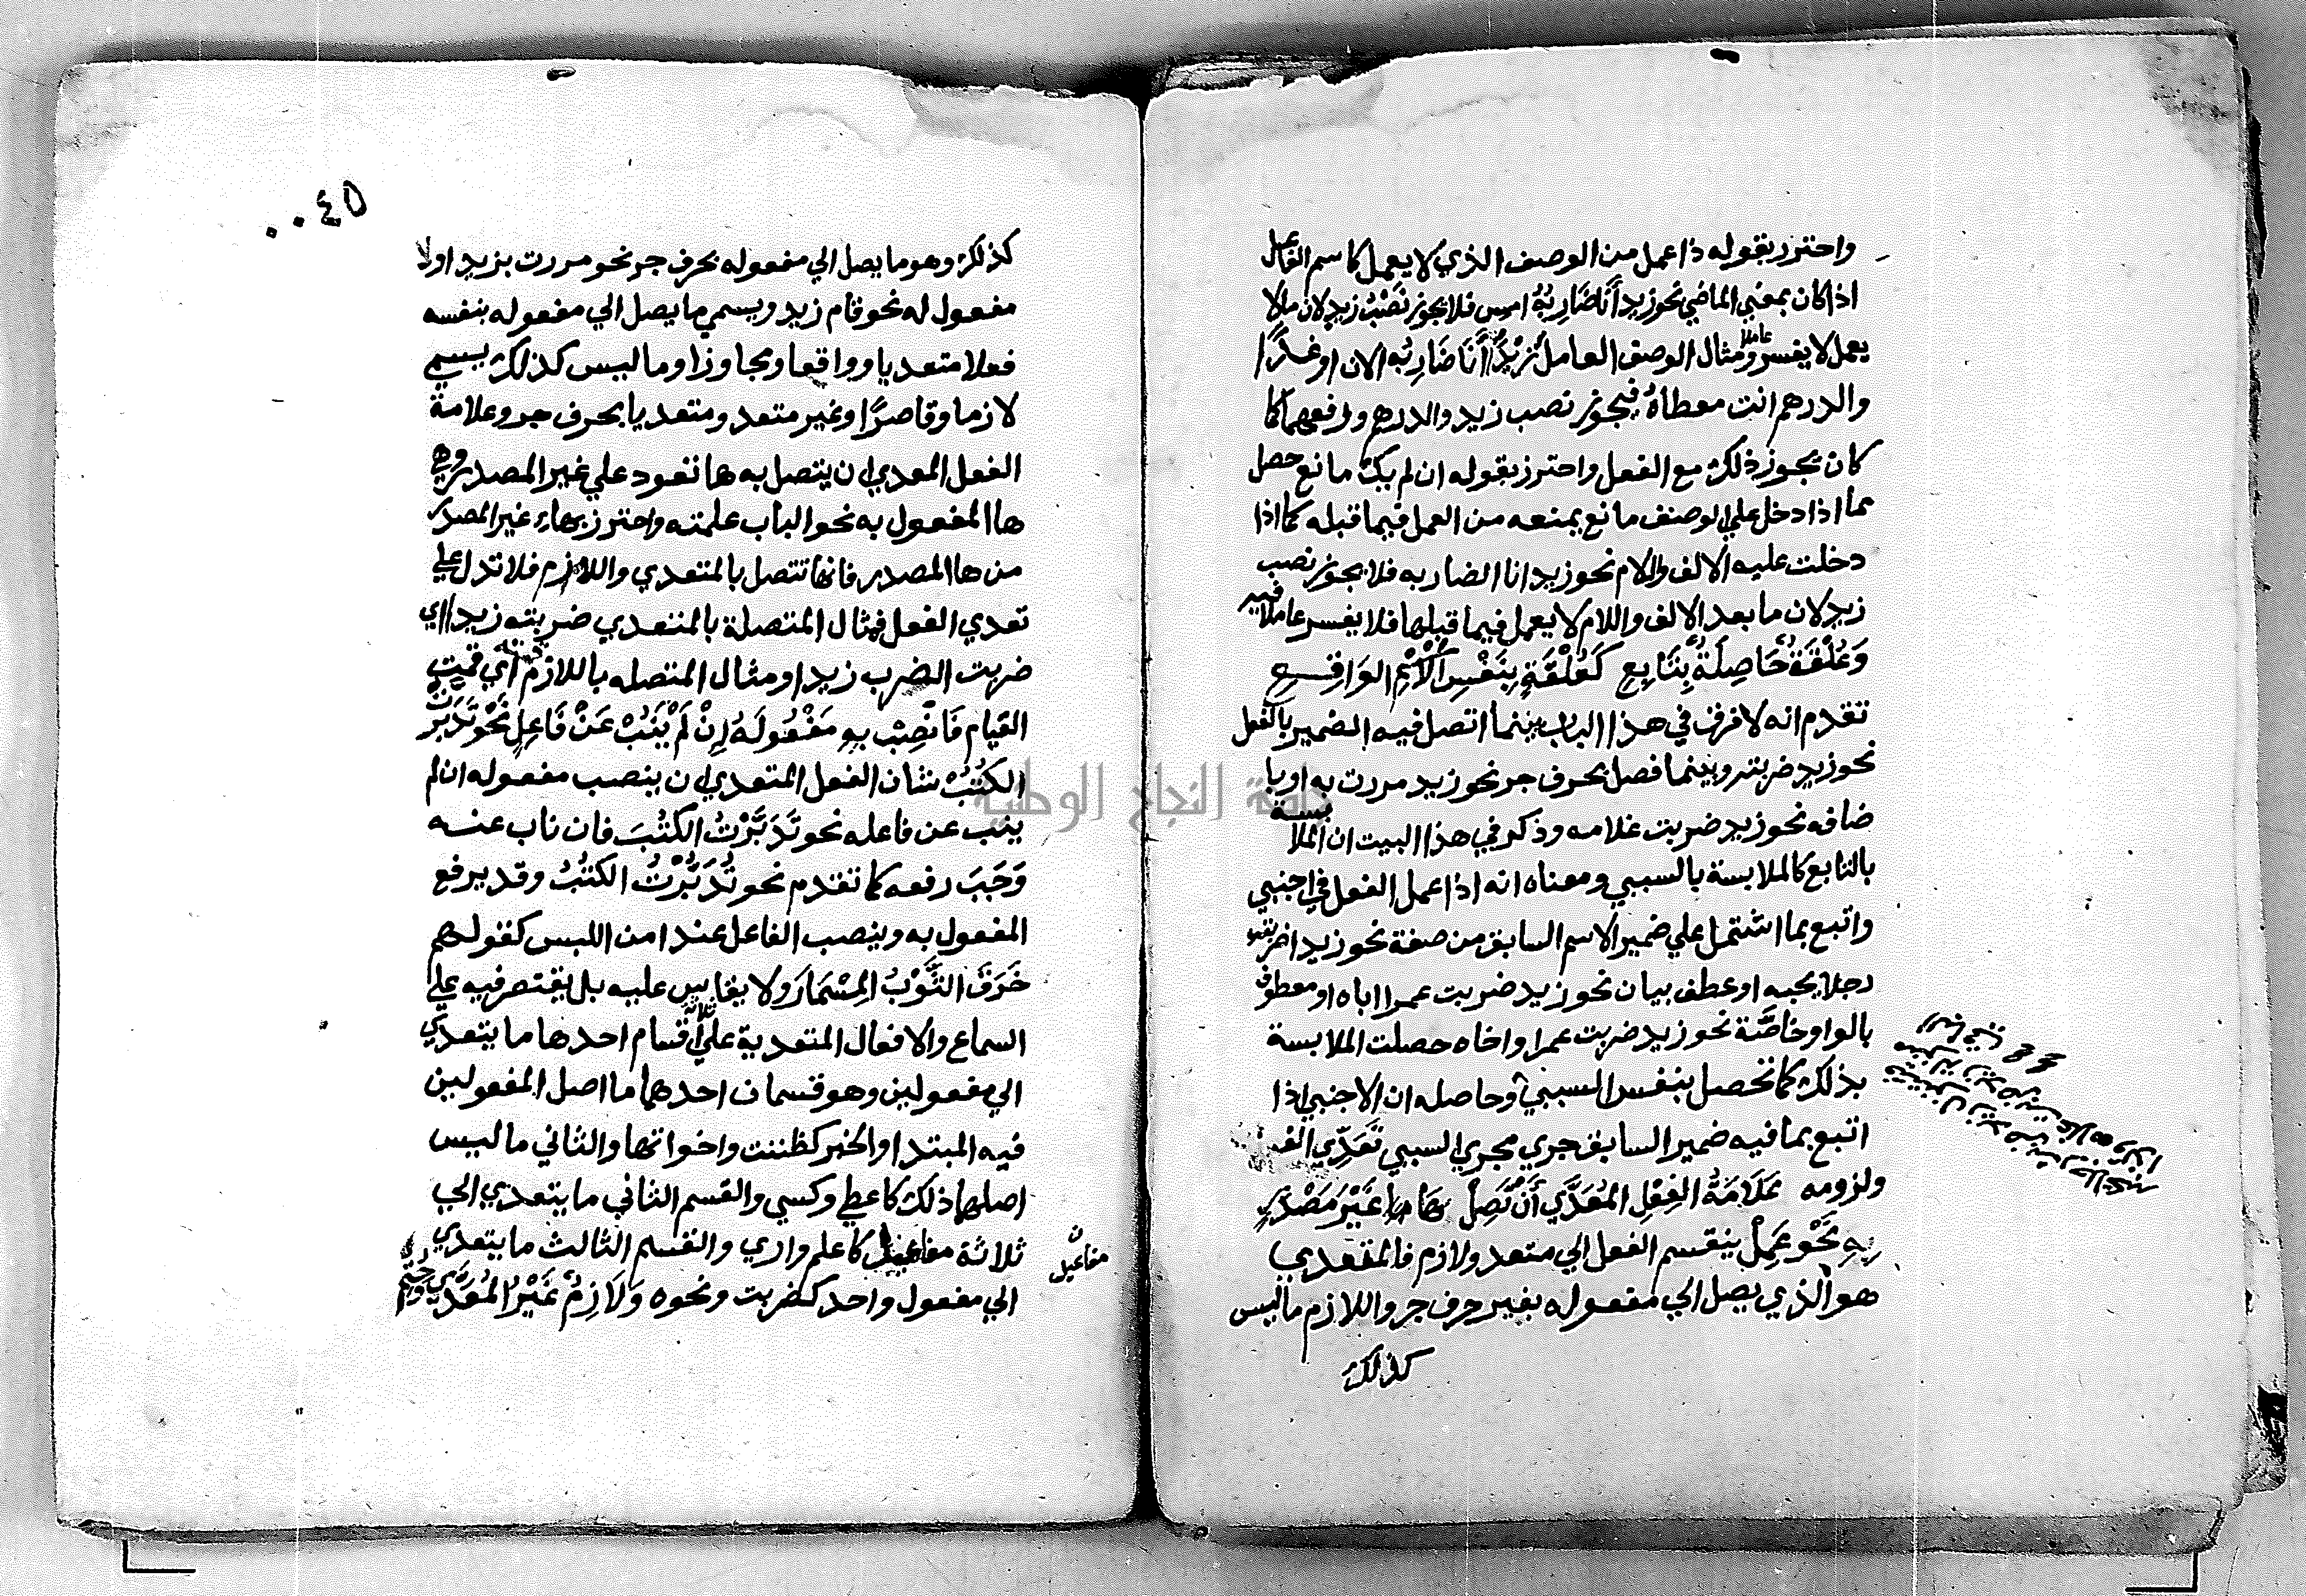 واحترز بقوله ذا عمل من الوصف الذي لا يعمل كاسم الفاعل
اذا كان بمعني الماضي نحو زيد أَنا ضَارِبُهُ امس فلا يجوز نَصْبُ زيد لان ما لا
يعمل لا يفسر عاملا ومثال الوصف العامل زَيْدًا أَنَا ضَارِبُه الان او غدًا
والدرهم انت معطاهُ فيجوز نصب زيد والدرهم ورفعهما كما
كان يجوز ذلك مع الفعل واحترز بقوله ان لم يك مانع حصل
عما اذا دخل علي الوصف مانع يمنعه من العمل فيما قبله كما اذا
دخلت عليه الالف واللام نحو زيد انا الضاربه فلا يجوز نصب
زيد لان ما بعد الالف واللام لا يعمل فيما قبلها فلا يفسر عاملا فيه
وَعُلْقَةٌ حَاصِلَةٌ بِتَابِعِ كَعُلْقَةٍ بِنَفْسِ الْاسْمِ الوَاقِعِ
تقدم انه لا فرق في هذا الباب بينما اتصل فيه الضمير بالفعل
نحو زيد ضربته وبينما فصل بحرف جر نحو زيد مررت به او با
ضافه نحو زيد ضربت غلامه وذكر في هذا البيت ان الملابسة
بالتابع كالملابسة بالسببي ومعناه انه اذا عمل الفعل في اجنبي
واتبع بما اشتمل علي ضمير الاسم السابق من صفة نحو زيدا ضربت
رجلا يحبه او عطف بيان نحو زيد ضربت عمرا اباه او معطوف
بالواو خاصَّة نحو زيد ضربت عمرا واخاه حصلت الملابسة
بذلك كما تحصل بنفس السببي وحاصله ان الاجنبي اذا
اتبع بما فيه ضمير السابق جري مجري السببي تَعَدِّي الفعل
ولزومه عَلَامَةُ الفِعْلِ المُعَدَّي أَنْ تَصِلْ هَا غَيْرِ مَصْدَرٍ
بِهِ نَحْو عَمِلْ ينقسم الفعل الي متعد ولازم فالمتعدي
هو الذي يصل الي مفعوله بغير حرف جر واللازم ما ليس
كذلك
٠٠٤٥
كذلك وهو ما يصل الي مفعوله بحرف جر نحو مررت بزيد او لا
مفعول له نحو قام زيد ويسمي ما يصل الي مفعوله بنفسه
فعلا متعديا وواقعا ومجاوزا وما ليس كذلك يسمي
لازما وقاصرًا وغير متعد ومتعديا بحرف جر وعلامة
الفعل المعدي ان يتصل به ها تعود علي غير المصدر وهي
ها المفعول به نحو الباب علمته واحترز بهاء غير المصدر
من ها المصدر فانها تتصل بالمتعدي واللازم فلا تدل علي
تعدي الفعل فمثال المتصلة بالمتعدي ضربته زيدا اي
ضربت الضرب زيدا ومثال المتصله باللازم قمته أي قمت
القيام فَانْصِبْ بِهِ مَفْعُولَهُ إِنْ لَمْ يَنُبْ عَنْ فَاعِلٍ نَحْو تَدَبَّرْتُ
الكُتُبْ شان الفعل المتعدي ان ينصب مفعوله ان لم
ينب عن فاعله نحو تَدَبَّرْتُ الكتُبَ فان ناب عنه
وَجَبَ رفعه كما تقدم نحو تُدُبِّرَتُ الكتُبُ وقد يرفع
المفعول به وينصب الفاعل عند امن اللبس كقولهم
خَرَقَ الثَّوْبُ المِسْمَارَ ولا يقاس عليه بل يقتصر فيه علي
السماع والافعال المتعدية علي ثلاثة أقسام احدها ما يتعدي
الي مفعولين وهو قسمان احدهما ما اصل المفعولين
فيه المبتدا والخبر كظننت واخواتها والثاني ما ليس
اصلهما ذلك كاعطي وكسي والقسم الثاني ما يتعدي الي
ثلاثة مفاعيل كاعلم واري والقسم الثالث ما يتعدي
الي مفعول واحد كضربت ونحوه وَلَازِمٌ غَيْرُ المُعَدَّي وحتم
مفاعيل
جامعة النجاح الوطنية